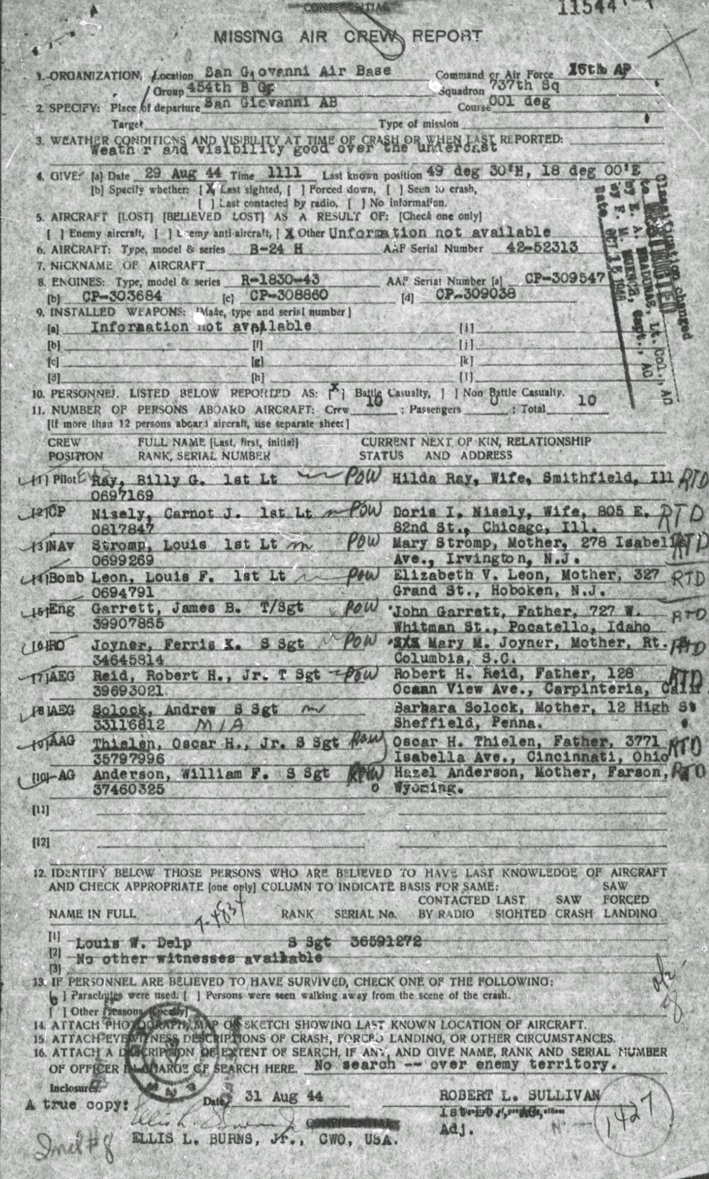 CONFIDENTIAL
11544
MISSING AIR CREW REPORT
1. ORGANIZATION, Location San Giovanni Air Base Command or Air Force 15th AF
Group 454th B Gp Squadron 737th Sq
2. SPECIFY: Place of departure San Giovanni AB Course 001 deg
Target Type of mission
3. WEATHER CONDITIONS AND VISIBILITY AT TIME OF CRASH OR WHEN LAST REPORTED:
Weath r and visibility good over the undercast
4. GIVE: [a] Date 29 Aug 44 Time 1111 Last known position 49 deg 30'N, 18 deg 00'E
[b] Specify whether: [X] Last sighted, [ ] Forced down, [ ] Seen to crash,
[ ] Last contacted by radio, [ ] No information.
5. AIRCRAFT [LOST] [BELIEVED LOST] AS A RESULT OF: [Check one only]
[ ] Enemy aircraft, [ ] Enemy anti-aircraft, [X] Other Unformation not available
6. AIRCRAFT: Type, model & series B-24 H AAF Serial Number 42-52313
7. NICKNAME OF AIRCRAFT
8. ENGINES: Type, model & series R-1830-43 AAF Serial Number [a] CP-309547
[b] CP-303684 [c] CP-308860 [d] CP-309038
9. INSTALLED WEAPONS: [Make, type and serial number]
[a] Information not available [i]
[b] [f] [j]
[c] [g] [k]
[d] [h] [l]
Classification changed
to
by E. A. BRADUNAS, Lt. Col., AC
by F. M. Capt., AC
Date OCT 15 1946
10. PERSONNEL LISTED BELOW REPORTED AS: [X] Battle Casualty, [ ] Non Battle Casualty.
11. NUMBER OF PERSONS ABOARD AIRCRAFT: Crew 10 ; Passengers 0 ; Total 10
[If more than 12 persons aboard aircraft, use separate sheet]
CREW FULL NAME [Last, first, initial] CURRENT NEXT OF KIN, RELATIONSHIP
POSITION RANK, SERIAL NUMBER STATUS AND ADDRESS
[1] Pilot Ray, Billy G. 1st Lt POW Hilda Ray, Wife, Smithfield, Ill RTD
0697169
[2] CP Nisely, Carnot J. 1st Lt POW Doris I. Nisely, Wife, 805 E. RTD
0817847 82nd St., Chicago, Ill.
[3] NAv Stromp, Louis 1st Lt POW Mary Stromp, Mother, 278 Isabella RTD
0699269 Ave., Irvington, N.J.
[4] Bomb Leon, Louis F. 1st Lt POW Elizabeth V. Leon, Mother, 327 RTD
0694791 Grand St., Hoboken, N.J.
[5] Eng Garrett, James B. T/Sgt POW John Garrett, Father, 727 W. RTD
39907865 Whitman St., Pocatello, Idaho
[6] RO Joyner, Ferris K. S Sgt POW XXX Mary M. Joyner, Mother, Rt. RTD
34645814 Columbia, S.C.
[7] AEG Reid, Robert H., Jr. T Sgt POW Robert H. Reid, Father, 128 RTD
39693021 Ocean View Ave., Carpinteria, Calif
[8] AEG Solock, Andrew S Sgt Barbara Solock, Mother, 12 High St
33116812 MIA Sheffield, Penna.
[9] AAG Thielen, Oscar H., Jr. S Sgt POW Oscar H. Thielen, Father, 3771 RTD
35797996 Isabella Ave., Cincinnati, Ohio
[10] AG Anderson, William F. S Sgt POW Hazel Anderson, Mother, Farson, RTD
37460325 Wyoming.
[11]
[12]
12. IDENTIFY BELOW THOSE PERSONS WHO ARE BELIEVED TO HAVE LAST KNOWLEDGE OF AIRCRAFT
AND CHECK APPROPRIATE [one only] COLUMN TO INDICATE BASIS FOR SAME: SAW
CONTACTED LAST SAW FORCED
NAME IN FULL RANK SERIAL No. BY RADIO SIGHTED CRASH LANDING
[1] Louis W. Delp S Sgt 36591272
[2] No other witnesses available
[3]
13. IF PERSONNEL ARE BELIEVED TO HAVE SURVIVED, CHECK ONE OF THE FOLLOWING:
[ ] Parachutes were used. [ ] Persons were seen walking away from the scene of the crash.
[ ] Other [reasons specify]
14. ATTACH PHOTOGRAPH, MAP OR SKETCH SHOWING LAST KNOWN LOCATION OF AIRCRAFT.
15. ATTACH EYEWITNESS DESCRIPTIONS OF CRASH, FORCED LANDING, OR OTHER CIRCUMSTANCES.
16. ATTACH A DESCRIPTION OF EXTENT OF SEARCH, IF ANY, AND GIVE NAME, RANK AND SERIAL NUMBER
OF OFFICER IN CHARGE OF SEARCH HERE. No search -- over enemy territory.
Inclosures
A true copy: Date 31 Aug 44 ROBERT L. SULLIVAN
1st Lt., AC,
CONFIDENTIAL Adj.
ELLIS L. BURNS, Jr., CWO, USA.
Incl #8
1427